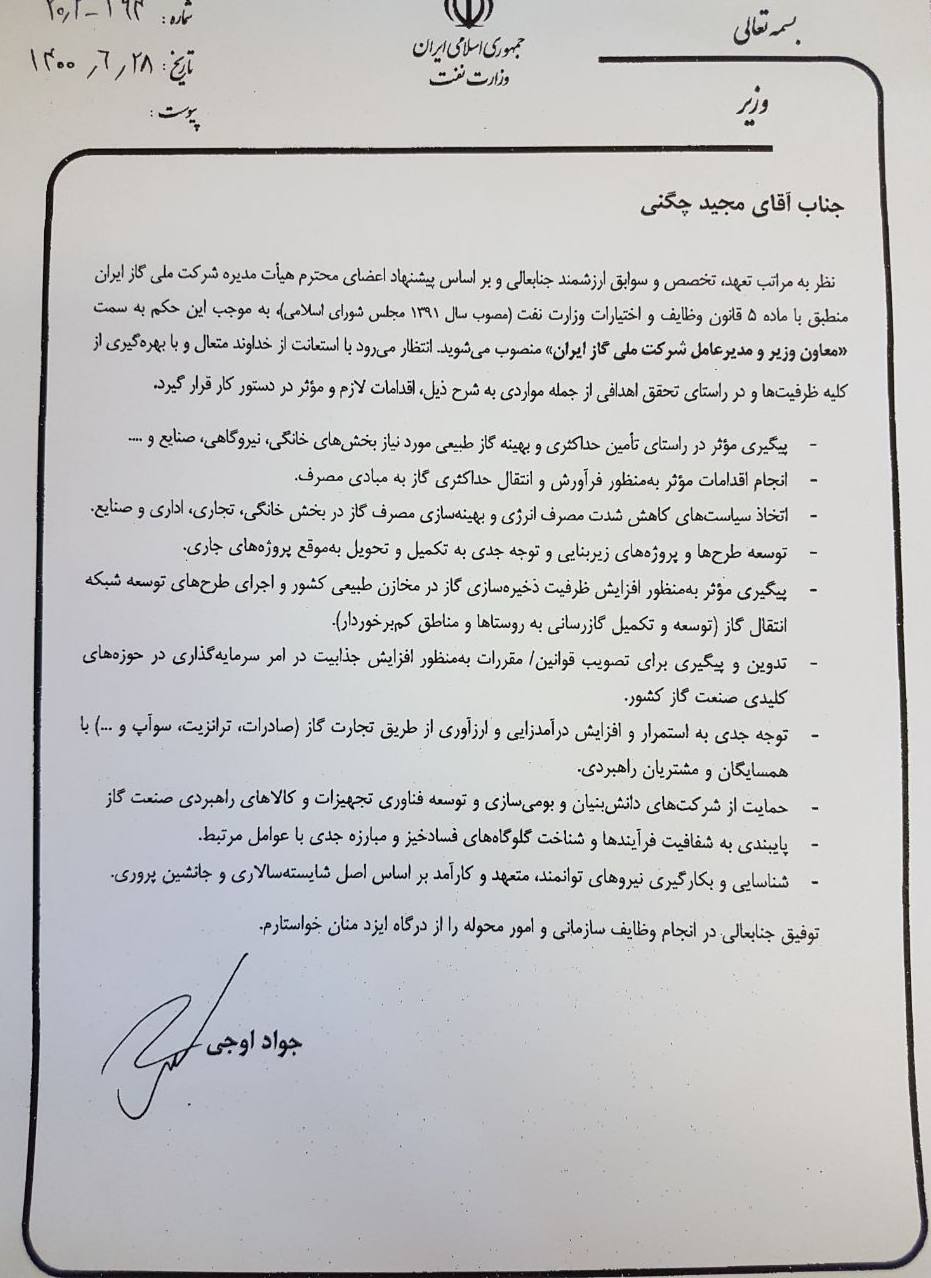 بسمه تعالی
جمهوری اسلامی ایران
وزارت نفت
وزیر
شماره :
تاریخ : ۱۴۰۰٫۶٫۲۸
پیوست :
جناب آقای مجید چگنی
نظر به مراتب تعهد، تخصص و سوابق ارزشمند جنابعالی و بر اساس پیشنهاد اعضای محترم هیأت مدیره شرکت ملی گاز ایران
منطبق با ماده ۵ قانون وظایف و اختیارات وزارت نفت (مصوب سال ۱۳۹۱ مجلس شورای اسلامی)، به موجب این حکم به سمت
«معاون وزیر و مدیرعامل شرکت ملی گاز ایران» منصوب می‌شوید. انتظار می‌رود با استعانت از خداوند متعال و با بهره‌گیری از
کلیه ظرفیت‌ها و در راستای تحقق اهدافی از جمله مواردی به شرح ذیل، اقدامات لازم و مؤثر در دستور کار قرار گیرد.
- پیگیری مؤثر در راستای تأمین حداکثری و بهینه گاز طبیعی مورد نیاز بخش‌های خانگی، نیروگاهی، صنایع و ....
- انجام اقدامات مؤثر به‌منظور فرآورش و انتقال حداکثری گاز به مبادی مصرف.
- اتخاذ سیاست‌های کاهش شدت مصرف انرژی و بهینه‌سازی مصرف گاز در بخش خانگی، تجاری، اداری و صنایع.
- توسعه طرح‌ها و پروژه‌های زیربنایی و توجه جدی به تکمیل و تحویل به‌موقع پروژه‌های جاری.
- پیگیری مؤثر به‌منظور افزایش ظرفیت ذخیره‌سازی گاز در مخازن طبیعی کشور و اجرای طرح‌های توسعه شبکه
انتقال گاز (توسعه و تکمیل گازرسانی به روستاها و مناطق کم‌برخوردار).
- تدوین و پیگیری برای تصویب قوانین/ مقررات به‌منظور افزایش جذابیت در امر سرمایه‌گذاری در حوزه‌های
کلیدی صنعت گاز کشور.
- توجه جدی به استمرار و افزایش درآمدزایی و ارزآوری از طریق تجارت گاز (صادرات، ترانزیت، سوآپ و ...) با
همسایگان و مشتریان راهبردی.
- حمایت از شرکت‌های دانش‌بنیان و بومی‌سازی و توسعه فناوری تجهیزات و کالاهای راهبردی صنعت گاز
- پایبندی به شفافیت فرآیندها و شناخت گلوگاه‌های فسادخیز و مبارزه جدی با عوامل مرتبط.
- شناسایی و بکارگیری نیروهای توانمند، متعهد و کارآمد بر اساس اصل شایسته‌سالاری و جانشین پروری.
توفیق جنابعالی در انجام وظایف سازمانی و امور محوله را از درگاه ایزد منان خواستارم.
جواد اوجی